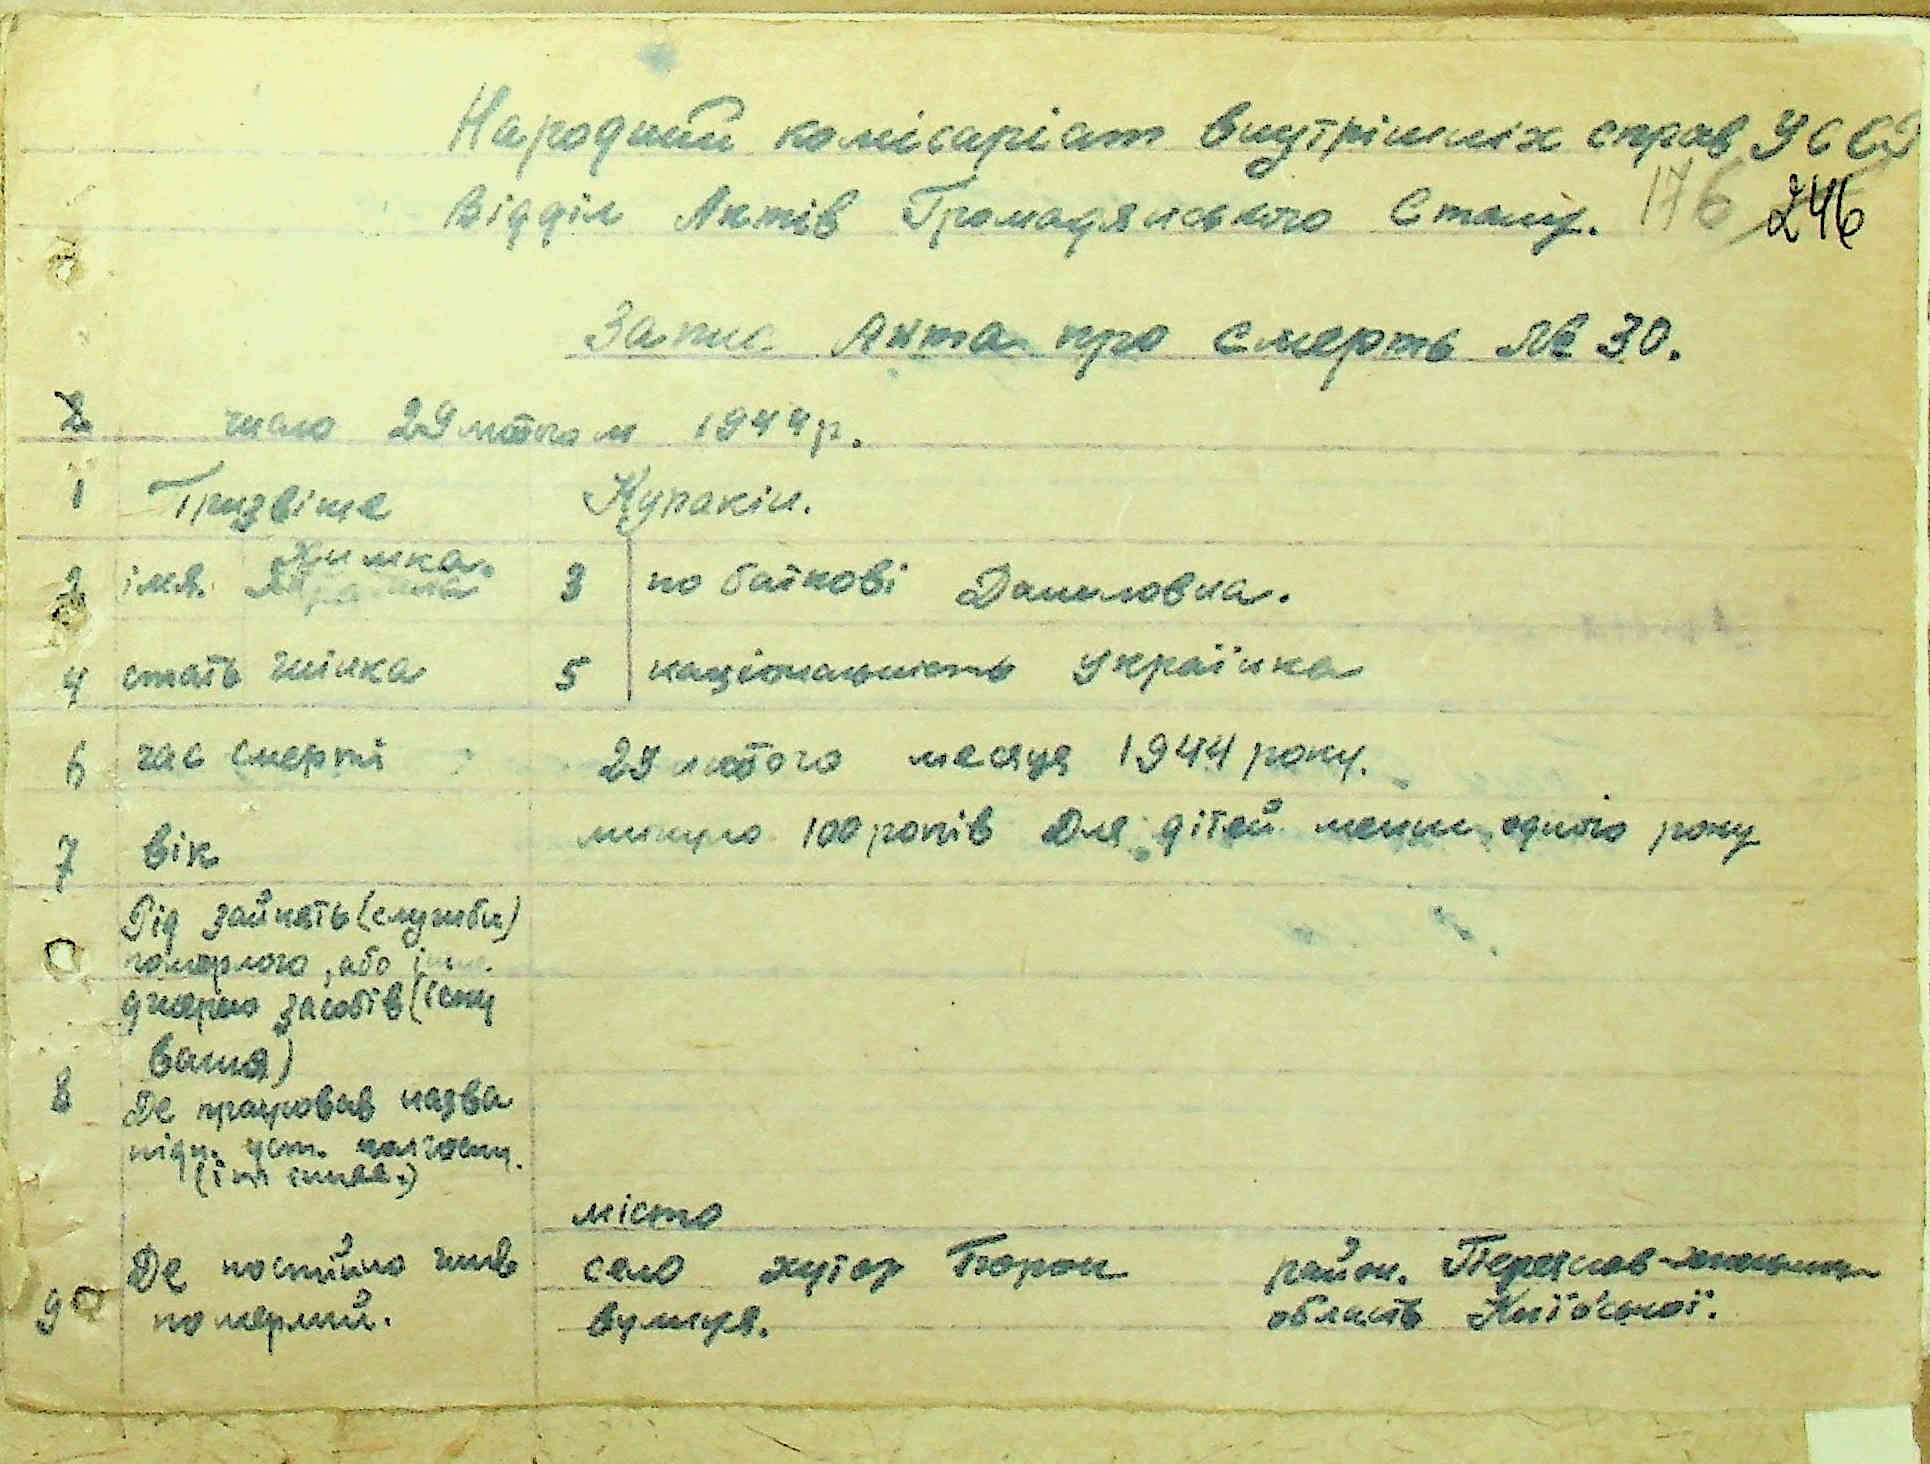 Народний комісаріат внутрішніх справ УССР
Відділ Актів Громадянського Стану. 176 246
Запис Акта про смерть № 30.
2 число 29 лютого м 1944 р.
1 Прізвіще Куракін.
2 імя. Химка. 3 по батькові Даниловна.
4 стать жінка 5 національність Українка
6 час смерті 29 лютого месяця 1944 року.
7 вік минуло 100 років Для дітей менш одного року
Рід занять (служби)
померлого, або інше
джерело засобів (існу
вання)
8 Де працював назва
підп. уст. колгоспу.
місто
9 Де постійно жив село хутор район. Переяслав-
померлий. вулиця. область Київської.